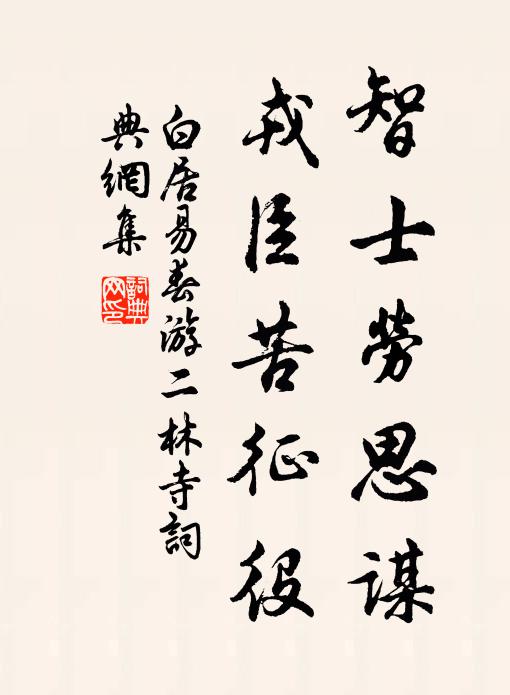 智士勞思謀
戎臣苦征役
白居易春游二林寺詞
典網集
詞典
网印